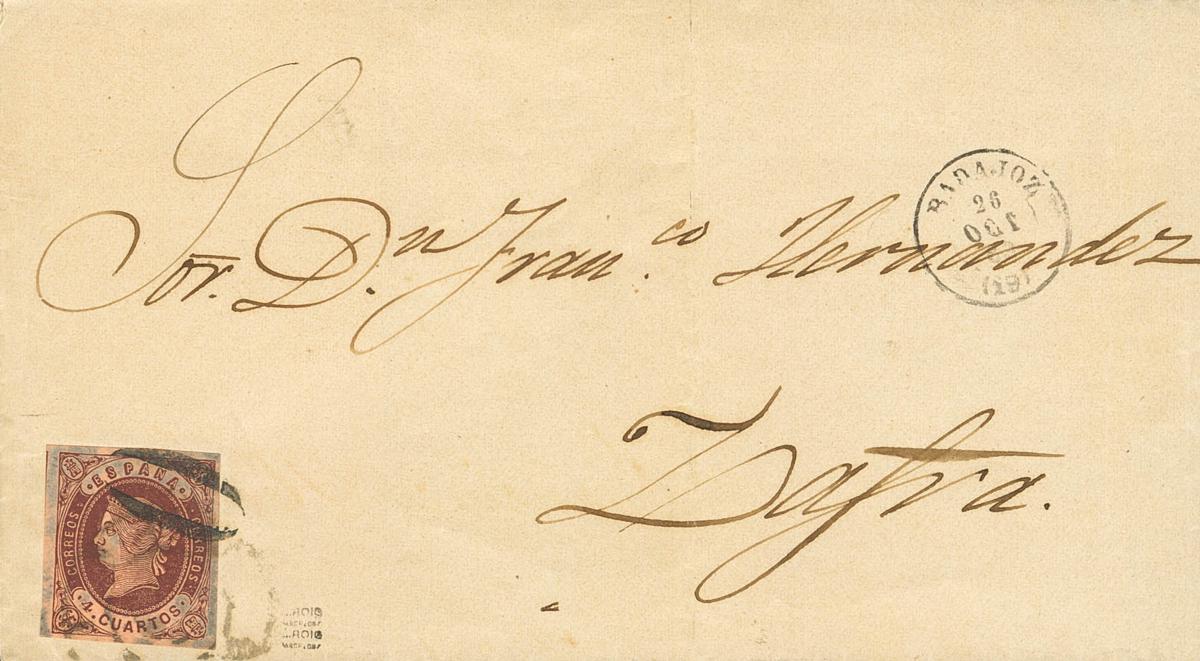 Sor. D.n Fran.co Hernandez
BADAJOZ
26
OCT
(19)
Zafra.
ESPAÑA
CORREOS
CORREOS
4 CUARTOS
ROIG
ROIG